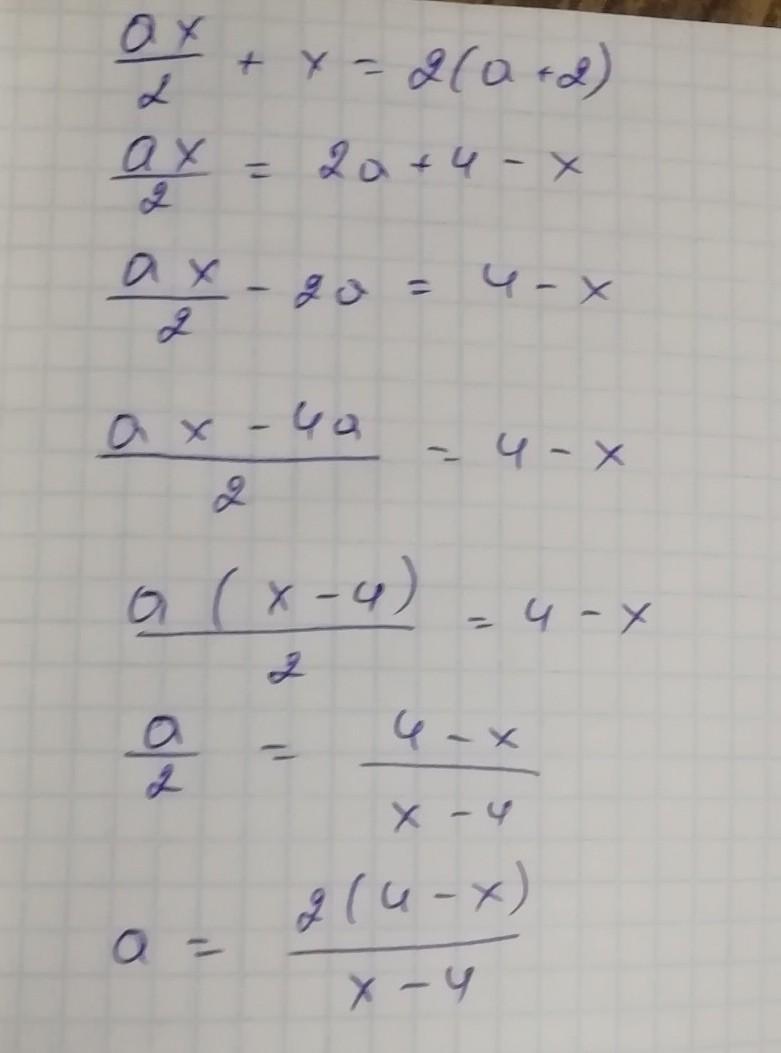 ax/2 + x = 2(a+2)
ax/2 = 2a+4-x
ax/2 - 2a = 4-x
ax-4a/2 = 4-x
a(x-4)/2 = 4-x
a/2 = 4-x/x-4
a = 2(4-x)/x-4